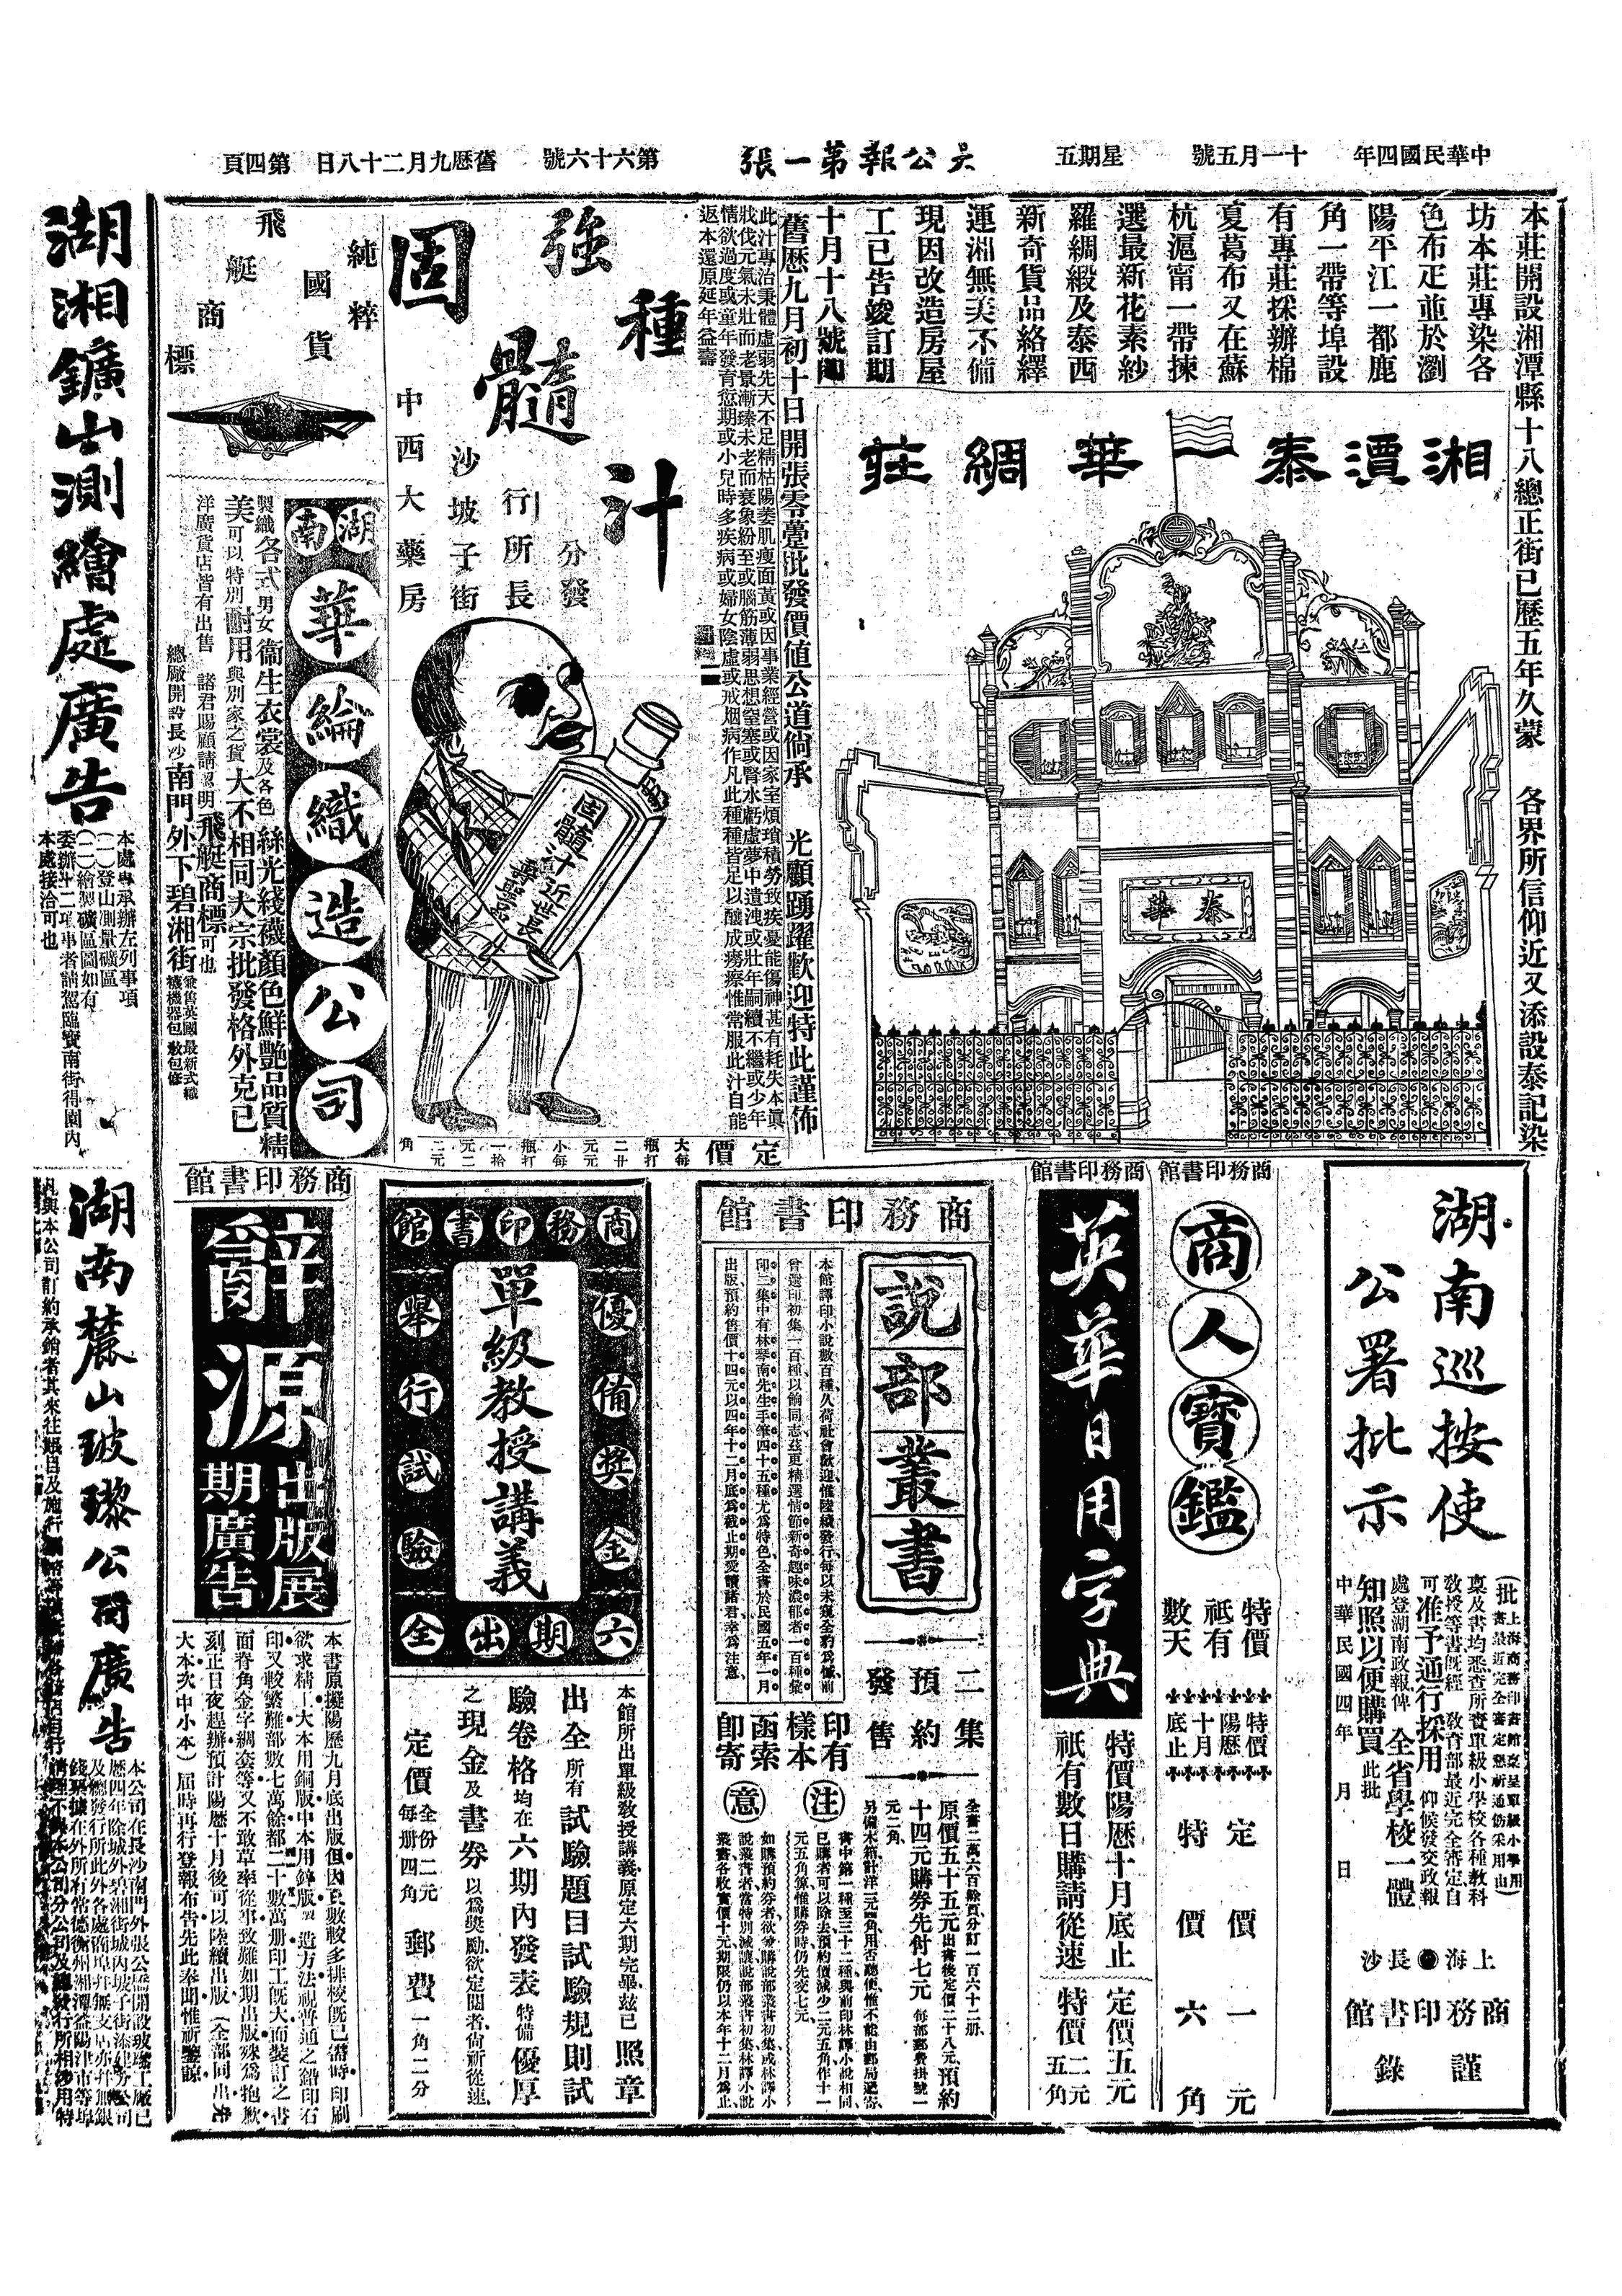 中華民國四年
十一月五號
星期五
大公報第一張
第六十六號
舊歷九月二十八日
第四頁
本莊開設湘潭縣十八總正街已歷五年久蒙　各界所信仰近又添設泰記染
坊本莊專染各
色布疋並於瀏
陽平江一都鹿
角一帶等埠設
有專莊採辦棉
夏葛布又在蘇
杭滬甯一帶揀
選最新花素紗
羅綢緞及泰西
新奇貨品絡繹
運湘無美不備
現因改造房屋
工已告竣訂期
十月十八號即
舊歷九月初十日開張零躉批發價値公道倘承　光顧踴躍歡迎特此謹佈
湘潭泰華綢莊
泰華
強種
固髓汁
分發
行所長
沙坡子街
中西大藥房
此汁專治秉體虛弱先天不足精枯陽萎肌瘦面黃或因事業經營或因家室煩瑣積勞致疾憂能傷神甚有耗失本眞
戕伐元氣未壯而老景漸臻未老而衰象紛至或腦筋薄弱思想窒塞或腎水虧虛夢中遺洩或壯年嗣續不繼或少年
情欲過度或童年發育愆期或小兒時多疾病或婦女陰虛或戒烟病作凡此種種皆足以釀成癆瘵惟常服此汁自能
返本還原延年益壽
固髓汁近世長
壽聖品
定價
大瓶每打二十二元
小瓶每打一拾二元
純粹國貨
飛艇商標
湖南華綸織造公司
製織各式男女衞生衣裳及各色絲光綫襪顏色鮮艷品質精
美可以特別耐用與別家之貨大不相同大宗批發格外克己
洋廣貨店皆有出售　諸君賜顧請認明飛艇商標可也
總廠開設長沙南門外下碧湘街
兼售英國最新式織
襪機器包教包修
湖湘鑛山測繪處廣告
本處專承辦左列事項
（一）登山測量礦區
（二）繪製礦區圖如有
委辦十二項事者請駕臨寶南街得園內
本處接洽可也
湖南巡按使
公署批示
（批上海商務印書館稟呈單級小學用
書最近完全審定懇祈通飭采用由）
稟及書均悉查所賫單級小學校各種教科
教授等書旣經　敎育部最近完全審定自
可准予通行採用　仰候發交政報
處登湖南政報俾　全省學校一體
知照以便購買此批
中華民國四年　月　日
上海　長沙
商務印書館
謹錄
商務印書館
商人寶鑑
特價祇有數天
特價陽歷十月底止
定價一元
特價六角
商務印書館
英華日用字典
特價陽歷十月底止
祇有數日購請從速
定價五元
特價二元五角
商務印書館
說部叢書
二集預約發售
本館譯印小說數百種久荷社會歡迎惟陸續發行每以未窺全豹爲憾前
曾選印初集一百種以餉同志茲更精選情節新奇趣味濃郁者一百種彙
印二集中有林琴南先生手筆四十五種尤爲特色全書於民國五年一月
出版預約售價十四元以四年十二月底爲截止期愛讀諸君幸爲注意
印有樣本函索即寄
全書二萬六百餘頁分訂一百六十二册
原價五十五元出書後定價二十八元預約
十四元購券先付七元　每部郵費掛號一
元二角
注意
書中第一種至三十二種與前印林譯小說相同
已購者可以除去預約價減少二元五角作十一
元五角算惟購券時仍先交七元
如購預約券者欲並購說部叢書初集或林譯小
說叢書者當特別減讓說部叢書初集林譯小說
叢書各收實價十元期限仍以本年十二月爲止
商務印書館
優備獎金
舉行試驗
單級教授講義
六期出全
本館所出單級敎授講義原定六期完畢玆已照章
出全所有試驗題目試驗規則試
驗卷格均在六期內發表特備優厚
之現金及書券以爲獎勵欲定閱者尙祈從速
定價　全份二元
每册四角
郵費一角二分
商務印書館
辭源
出版展期廣告
本書原擬陽歷九月底出版但因頁數較多排校旣已需時印刷
欲求精工大本用銅版中本用鋅版製造方法視普通之鉛印石
印又較繁難部數七萬餘都二十數萬册印工旣大而裝訂之書
面脊角金字綢套等又不敢草率從事致難如期出版殊爲抱歉
刻正日夜趕辦預計陽歷十月後可以陸續出版（全部同出先
大本次中小本）屆時再行登報布告先此奉聞惟祈鑒諒
湖南麓山玻璨公司廣告